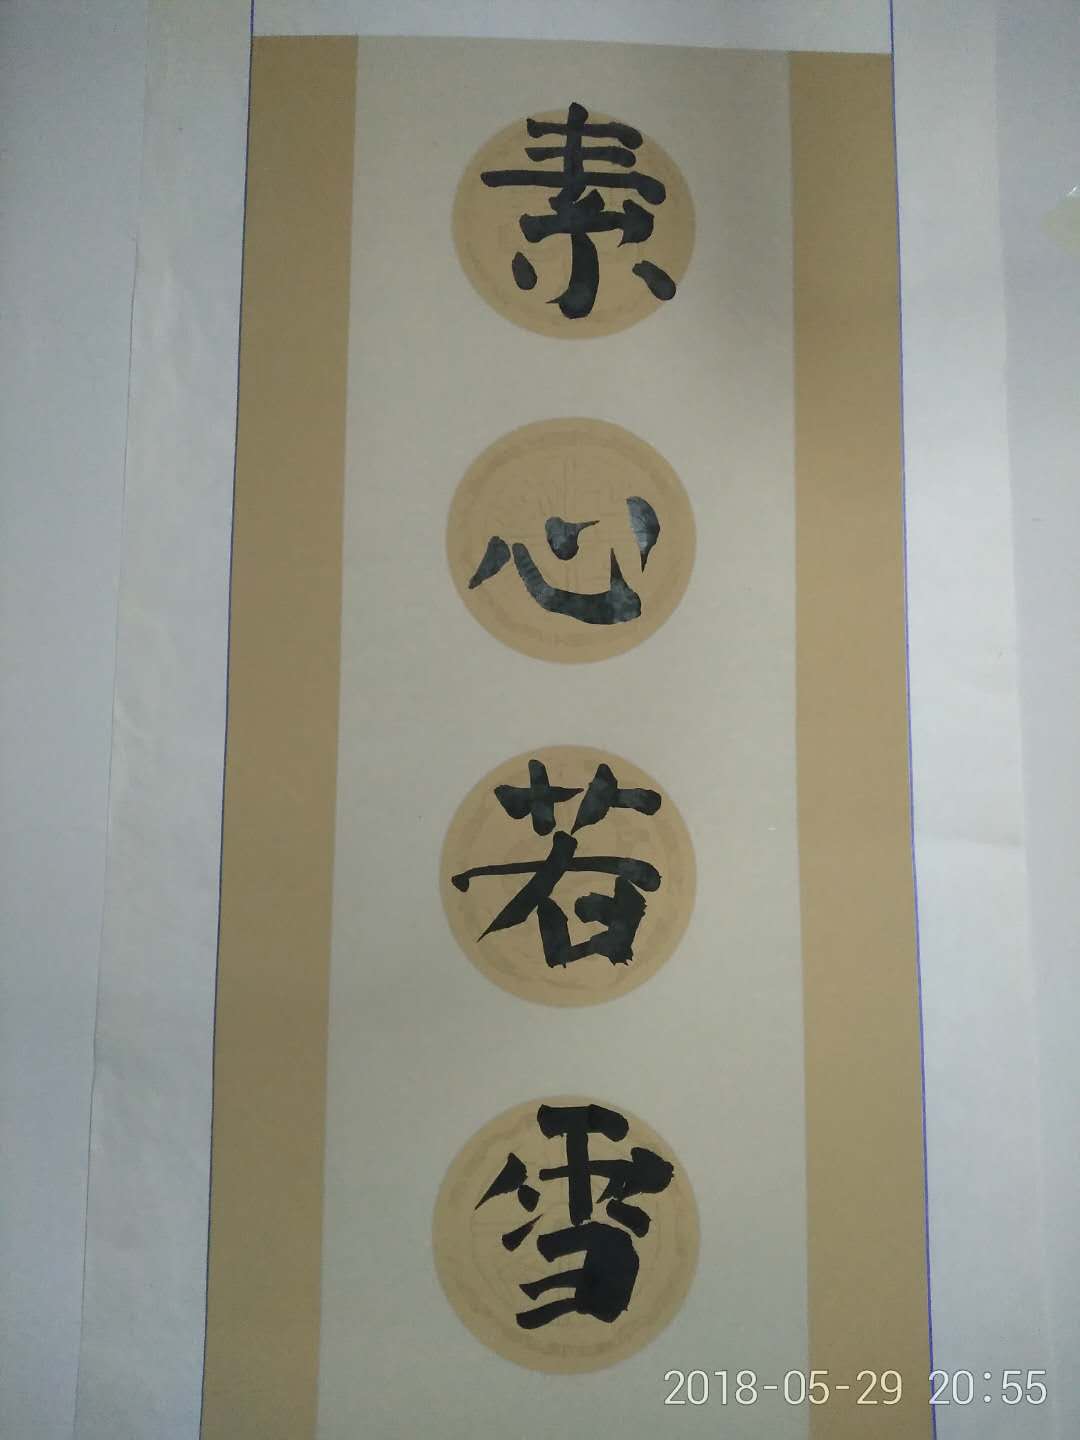 素心若雪
2018-05-29 20:55